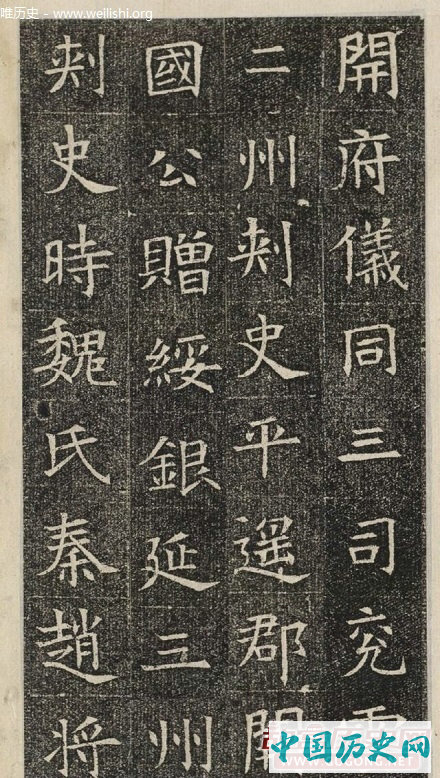 唯历史 - www.weilishi.org
開府儀同三司兖
二州刺史平遥郡開
國公贈綏銀延三州
刺史時魏氏秦趙将
中国历史网